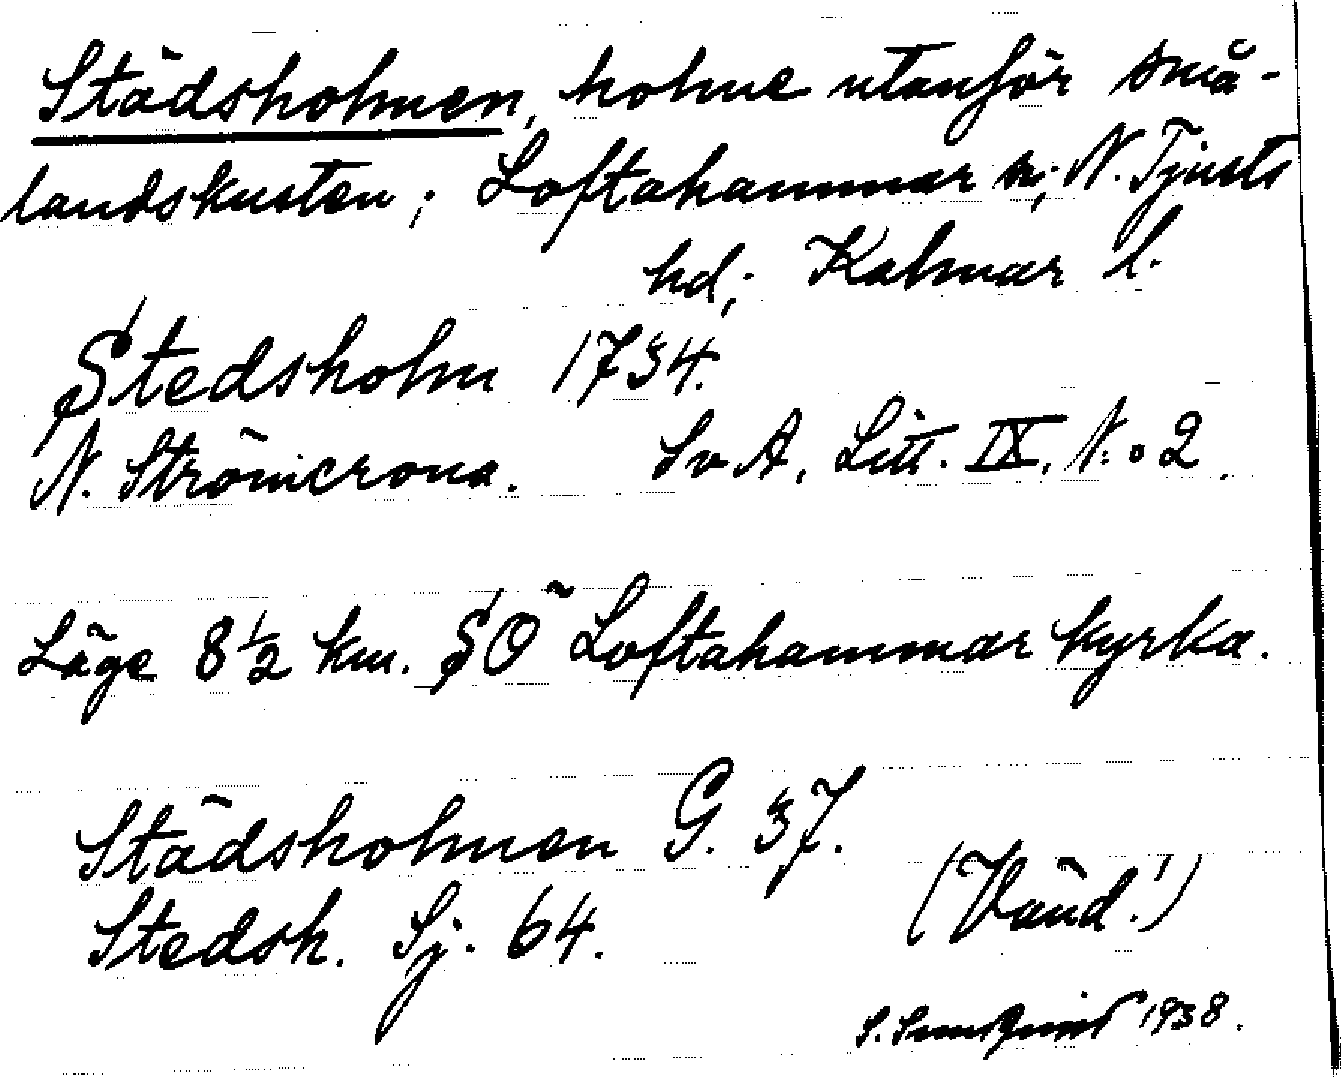 Städsholmen, holme utanför små-
landskusten; Loftahammar s; N. Tjusts
hd; Kalmar l.
Stedsholm 1734.
N. Strömcrona. Sv A, Litt. IX, N:o 2.
Läge 8 1/2 km. SÖ Loftahammar kyrka.
Städsholmen G. 37.
Stedsh. Sj. 64.
(Vänd!)
S. Sundqvist 1938.